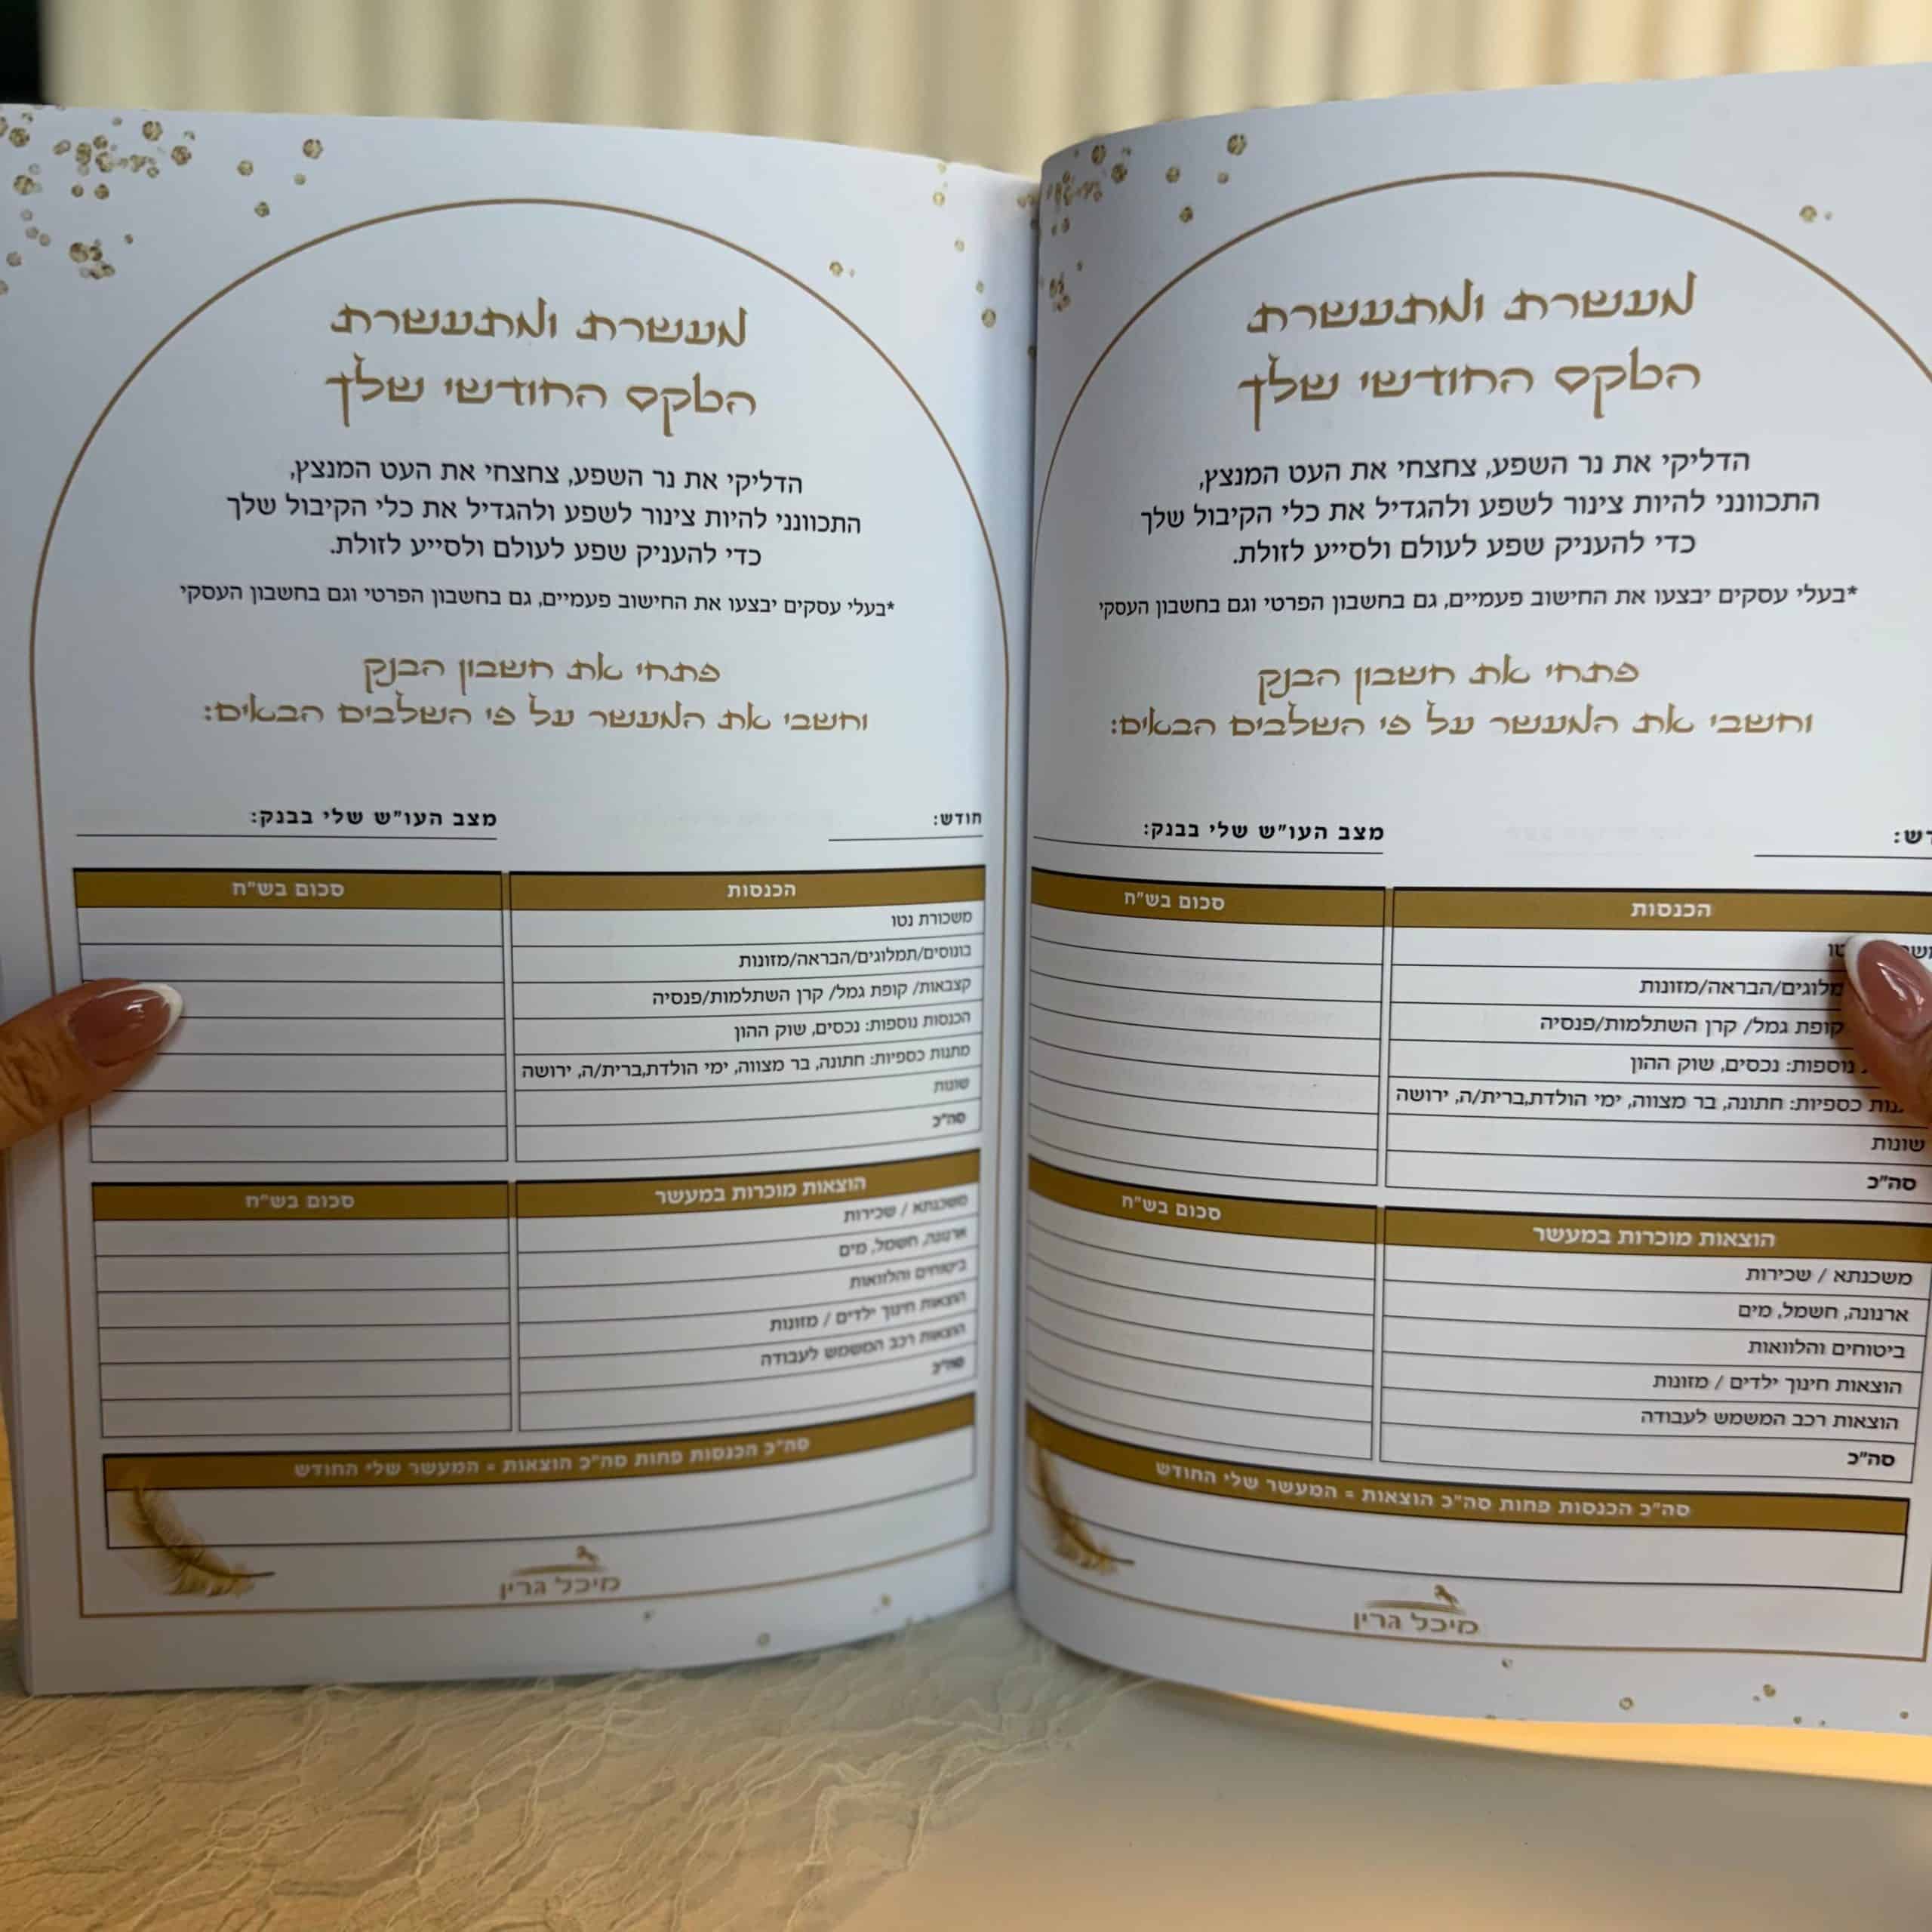 מעשרת ומתעשרת
הטקס החודשי שלך
הדליקי את נר השפע, צחצחי את העט המנצץ,
התכוונני להיות צינור לשפע ולהגדיל את כלי הקיבול שלך
כדי להעניק שפע לעולם ולסייע לזולת.
*בעלי עסקים יבצעו את החישוב פעמיים, גם בחשבון הפרטי וגם בחשבון העסקי
פתחי את חשבון הבנק
וחשבי את המעשר על פי השלבים הבאים:
דש: מצב העו"ש שלי בבנק:
הכנסות סכום בש"ח
טו
מלוגים/הבראה/מזונות
קופת גמל/ קרן השתלמות/פנסיה
נוספות: נכסים, שוק ההון
נות כספיות: חתונה, בר מצווה, ימי הולדת,ברית/ה, ירושה
שונות
סה"כ
הוצאות מוכרות במעשר סכום בש"ח
משכנתא / שכירות
ארנונה, חשמל, מים
ביטוחים והלוואות
הוצאות חינוך ילדים / מזונות
הוצאות רכב המשמש לעבודה
סה"כ
סה"כ הכנסות פחות סה"כ הוצאות = המעשר שלי החודש
מיכל גרין
מעשרת ומתעשרת
הטקס החודשי שלך
הדליקי את נר השפע, צחצחי את העט המנצץ,
התכוונני להיות צינור לשפע ולהגדיל את כלי הקיבול שלך
כדי להעניק שפע לעולם ולסייע לזולת.
*בעלי עסקים יבצעו את החישוב פעמיים, גם בחשבון הפרטי וגם בחשבון העסקי
פתחי את חשבון הבנק
וחשבי את המעשר על פי השלבים הבאים:
חודש: מצב העו"ש שלי בבנק:
הכנסות סכום בש"ח
משכורת נטו
בונוסים/תמלוגים/הבראה/מזונות
קצבאות/ קופת גמל/ קרן השתלמות/פנסיה
הכנסות נוספות: נכסים, שוק ההון
מתנות כספיות: חתונה, בר מצווה, ימי הולדת,ברית/ה, ירושה
שונות
סה"כ
הוצאות מוכרות במעשר סכום בש"ח
משכנתא / שכירות
ארנונה, חשמל, מים
ביטוחים והלוואות
הוצאות חינוך ילדים / מזונות
הוצאות רכב המשמש לעבודה
סה"כ
סה"כ הכנסות פחות סה"כ הוצאות = המעשר שלי החודש
מיכל גרין